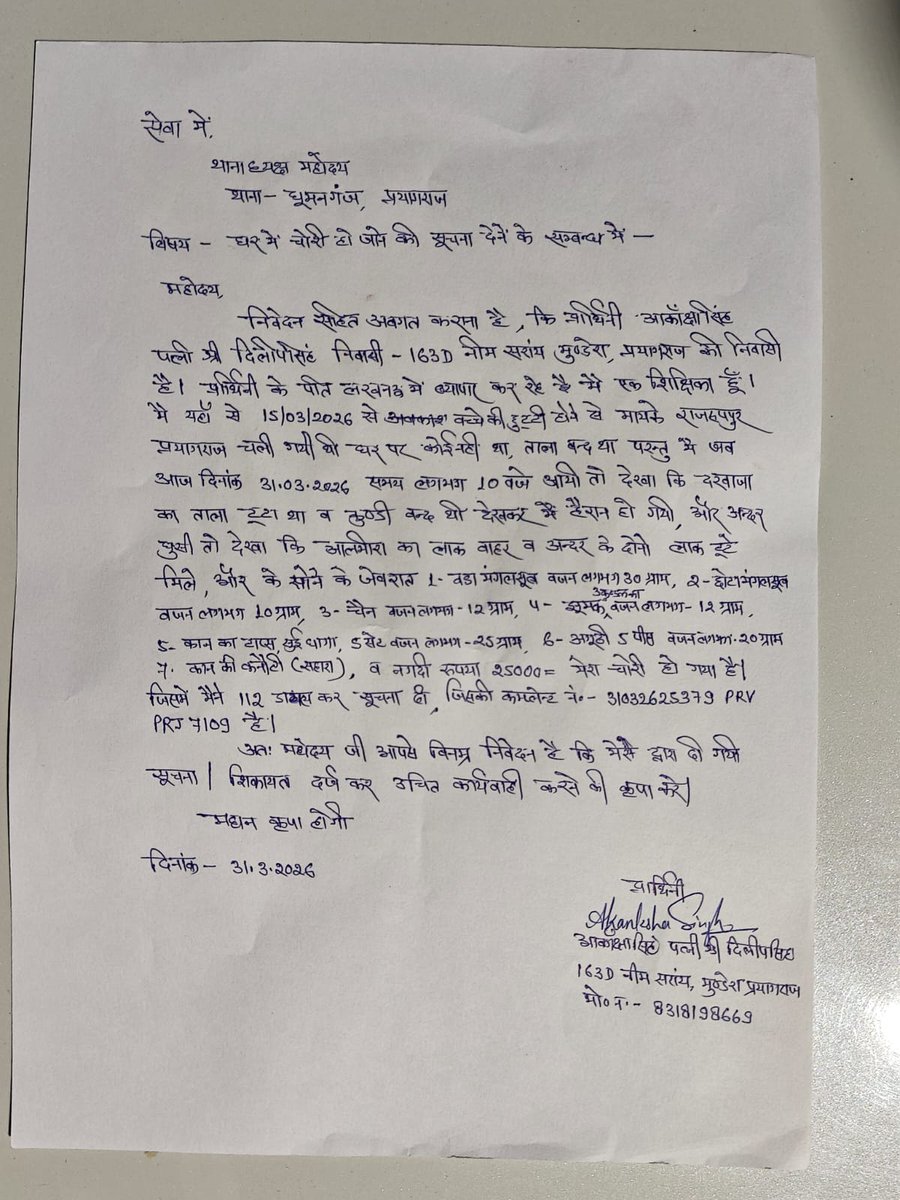 सेवा में,
थानाध्यक्ष महोदय
थाना- धूमनगंज, प्रयागराज
विषय - घर में चोरी हो जाने की सूचना देने के सम्बन्ध में -
महोदय,
निवेदन सहित अवगत कराना है, कि प्रार्थिनी आकाँक्षा सिंह
पत्नी श्री दिलीप सिंह निवासी - 163D नीम सरांय मुण्डेरा, प्रयागराज की निवासी
है। प्रार्थिनी के पति लखनऊ में व्यापार कर रहे है मै एक शिक्षिका हूँ।
मै यहाँ से 15/03/2026 से बच्चे की छुट्टी होने से मायके राजरूपपुर
प्रयागराज चली गयी थी घर पर कोई नही था, ताला बन्द था परन्तु मै जब
आज दिनांक 31.03.2026 समय लगभग 10 बजे आयी तो देखा कि दरवाजा
का ताला टूटा था व कुण्डी बन्द थी देखकर मै हैरान हो गयी, और अन्दर
घुसी तो देखा कि आलमीरा का लाक बाहर व अन्दर के दोनो लाक टूटे
मिले, और के सोने के जेवरात 1- बडा मंगलसूत्र वजन लगभग 30 ग्राम, 2- छोटा मंगलसूत्र
वजन लगभग 10 ग्राम, 3- चैन वजन लगभग - 12 ग्राम, 4- झुमका वजन लगभग - 12 ग्राम,
5- कान का टाप्स, सुई धागा, 5 सेट वजन लगभग - 25 ग्राम, 6- अगूठी 5 पीस वजन लगभग - 20 ग्राम
7. कान की कनौटी (सहारा), व नगदी रुपया 25000= मेरा चोरी हो गया है।
जिसमे मैने 112 डायल कर सूचना दी, जिसकी कम्प्लेन्ट नं०- 31032625379 PRV
PRJ 7109 है।
अतः महोदय जी आपसे विनम्र निवेदन है कि मेरी द्वारा दी गयी
सूचना / शिकायत दर्ज कर उचित कार्यवाही करने की कृपा करें।
महान कृपा होगी
दिनांक - 31.3.2026
प्रार्थिनी
Akanksha Singh
आकांक्षा सिंह पत्नी श्री दिलीप सिंह
163D नीम सरांय, मुण्डेरा प्रयागराज
मो० न.- 8318198669